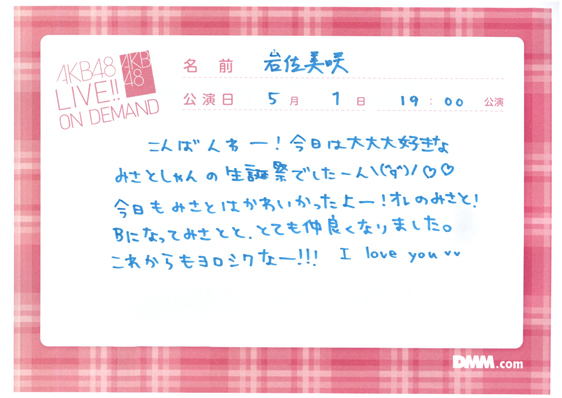 AKB48
LIVE!!
ON DEMAND
AKB
48
名 前 岩佐美咲
公演日 5月 1日 19:00 公演
こんばんわー！今日は大大大好きな
みさとしゃんの生誕祭でしたーん\(°з°)/♡♡
今日もみさとはかわいかったよー！オレのみさと！
Bになってみさとと、とても仲良くなりました。
これからもヨロシクなー!!! I love you♥♥
DMM.com